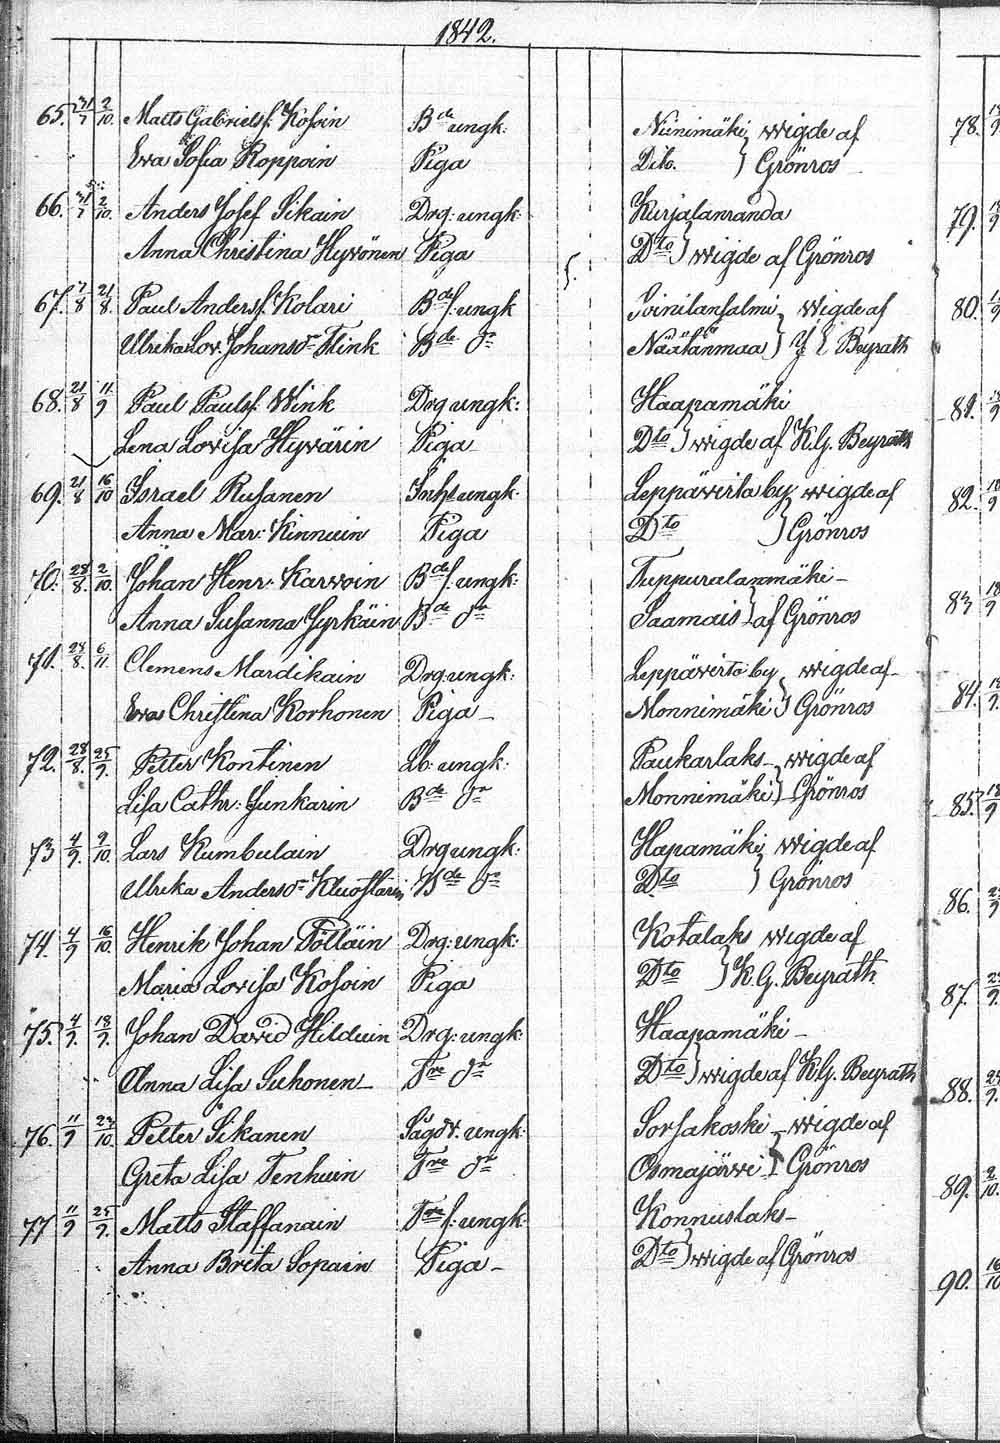 1842.
65. 31/7 2/10. Matts Gabrielsf. Kosoin Bde ungk: Niinimäki } wigde af
Ewa Sofia Roppoin Piga Dito. } Grönros
66. 31/7 2/10. Anders Josef Sikain Drg: ungk: Kurjalanranda
Anna Christina Hyvönen Piga Dto } wigde af Grönros
67. 7/8 21/8. Paul Andersf. Kolari Bdes: ungk Soinilansalmi } wigde af
Ulrika Lov. Johansdr Flink Bde dr Näätänmaa } Beyrath
68. 21/8 11/9 Paul Paulsf. Wink Drg ungk: Haapamäki
Lena Lovisa Hyvärin Piga Dto } wigde af K.G. Beyrath
69. 21/8 16/10 Israel Rusanen Inhs ungk. Leppävirta by } wigde af
Anna Mar: Kinnuin Piga Dto } Grönros
70. 28/8. 2/10. Johan Henr: Karvoin Bdes: ungk: Tuppuralanmäki –
Anna Susanna Jyrkäin Bde dr Saamais } af Grönros
71. 28/8. 6/11. Clemens Mardikain Drg: ungk: Leppävirta by } wigde af –
Ewa Christina Korhonen Piga – Monnimäki } Grönros
72. 28/8. 25/9. Petter Kontinen Lb: ungk: Paukarlaks – } wigde af
Lisa Cathr: Junkarin Bde dr Monnimäki } Grönros
73 4/9. 9/10. Lars Kumbulain Drg ungk: Hapamäki } wigde af
Ulrika Andersdr Bde dr Dto } Grönros
74. 4/9 16/10. Henrik Johan Tölläin Drg: ungk: Kotalaks wigde af
Maria Lovisa Kosoin Piga Dto } K.G. Beyrath
75. 4/9. 18/9. Johan David Hilduin Drg: ungk: Haapamäki –
Anna Lisa Suhonen – Tre dr Dto } wigde af K.G. Beyrath
76. 11/9 23/10. Petter Sikanen Sågdr. ungk: Sorsakoski – } wigde af
Greta Lisa Tenhuin Tre dr Osmajärwi } Grönros
77 11/9 25/9. Matts Staffanain Tre s: ungk Konnuslaks –
Anna Brita Sopain Piga – Dto } wigde af Grönros
78.
79.
80.
81.
82.
83
84.
85.
86.
87.
88.
89.
90. 16/10